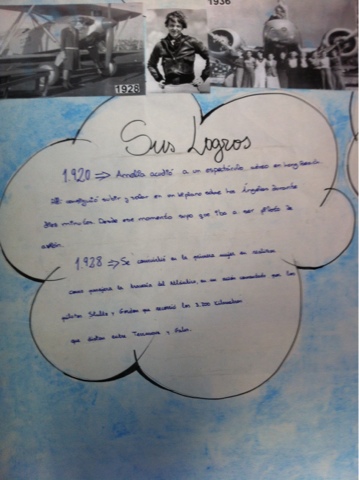 1928
1936
Sus Logros
1.920 ⇒ Amelia acudió a un espectáculo aéreo en Long Beach.
Allí consiguió subir y volar en un biplano sobre los Ángeles durante
diez minutos. Desde ese momento supo que iba a ser piloto de
avión.
1.928 ⇒ Se convirtió en la primera mujer en realizar
como pasajera la travesía del Atlántico, en un avión comandado por los
pilotos Stultz y Gordon que recorrió los 3.200 kilómetros
que distan entre Terranova y Gales.